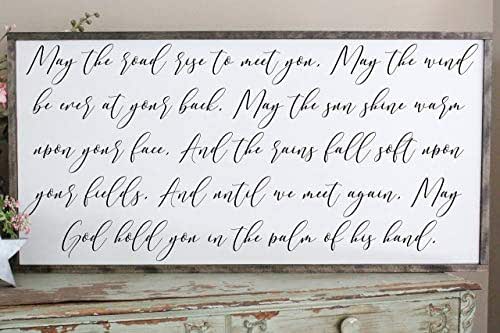 May the road rise to meet you. May the wind
be ever at your back. May the sun shine warm
upon your face. And the rains fall soft upon
your fields. And until we meet again. May
God hold you in the palm of his hand.